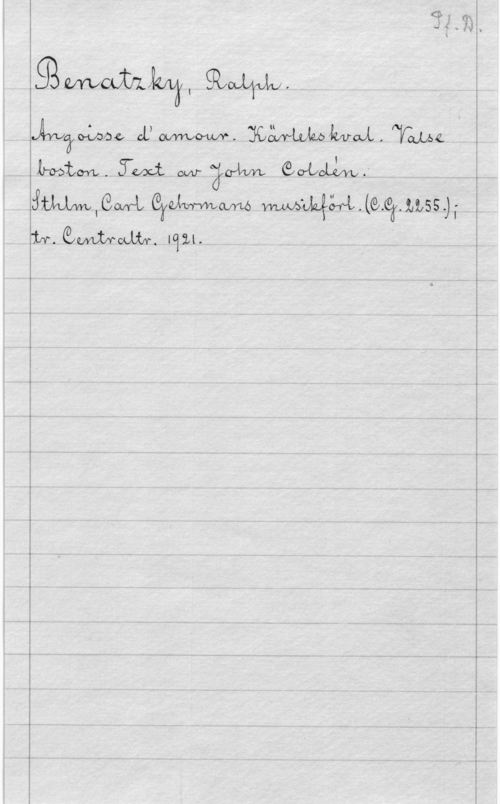 Pf. D.
Benatzky, Ralph.
Angoisse d'amour. Kärlekskval. Valse
boston. Text av John Coldén.
Sthlm, Carl Gehrmans musikförl. (C.G. 2255.);
tr. Centraltr. 1921.